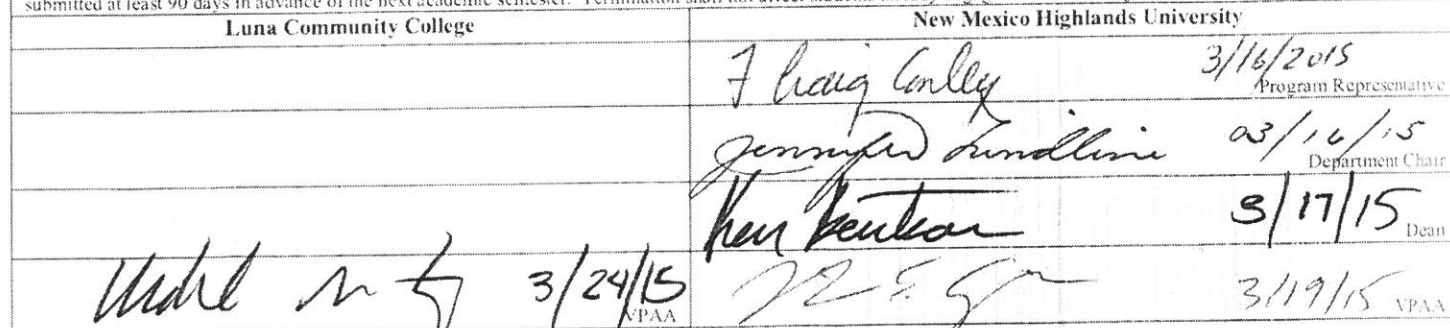 submitted at least 90 days in advance of the next academic semester. Termination shall not affect students
Luna Community College
New Mexico Highlands University
F Craig Conley 3/16/2015
Program Representative
Jennifer Lindline 03/16/15
Department Chair
3/17/15
Dean
3/24/15
VPAA
3/19/15 VPAA